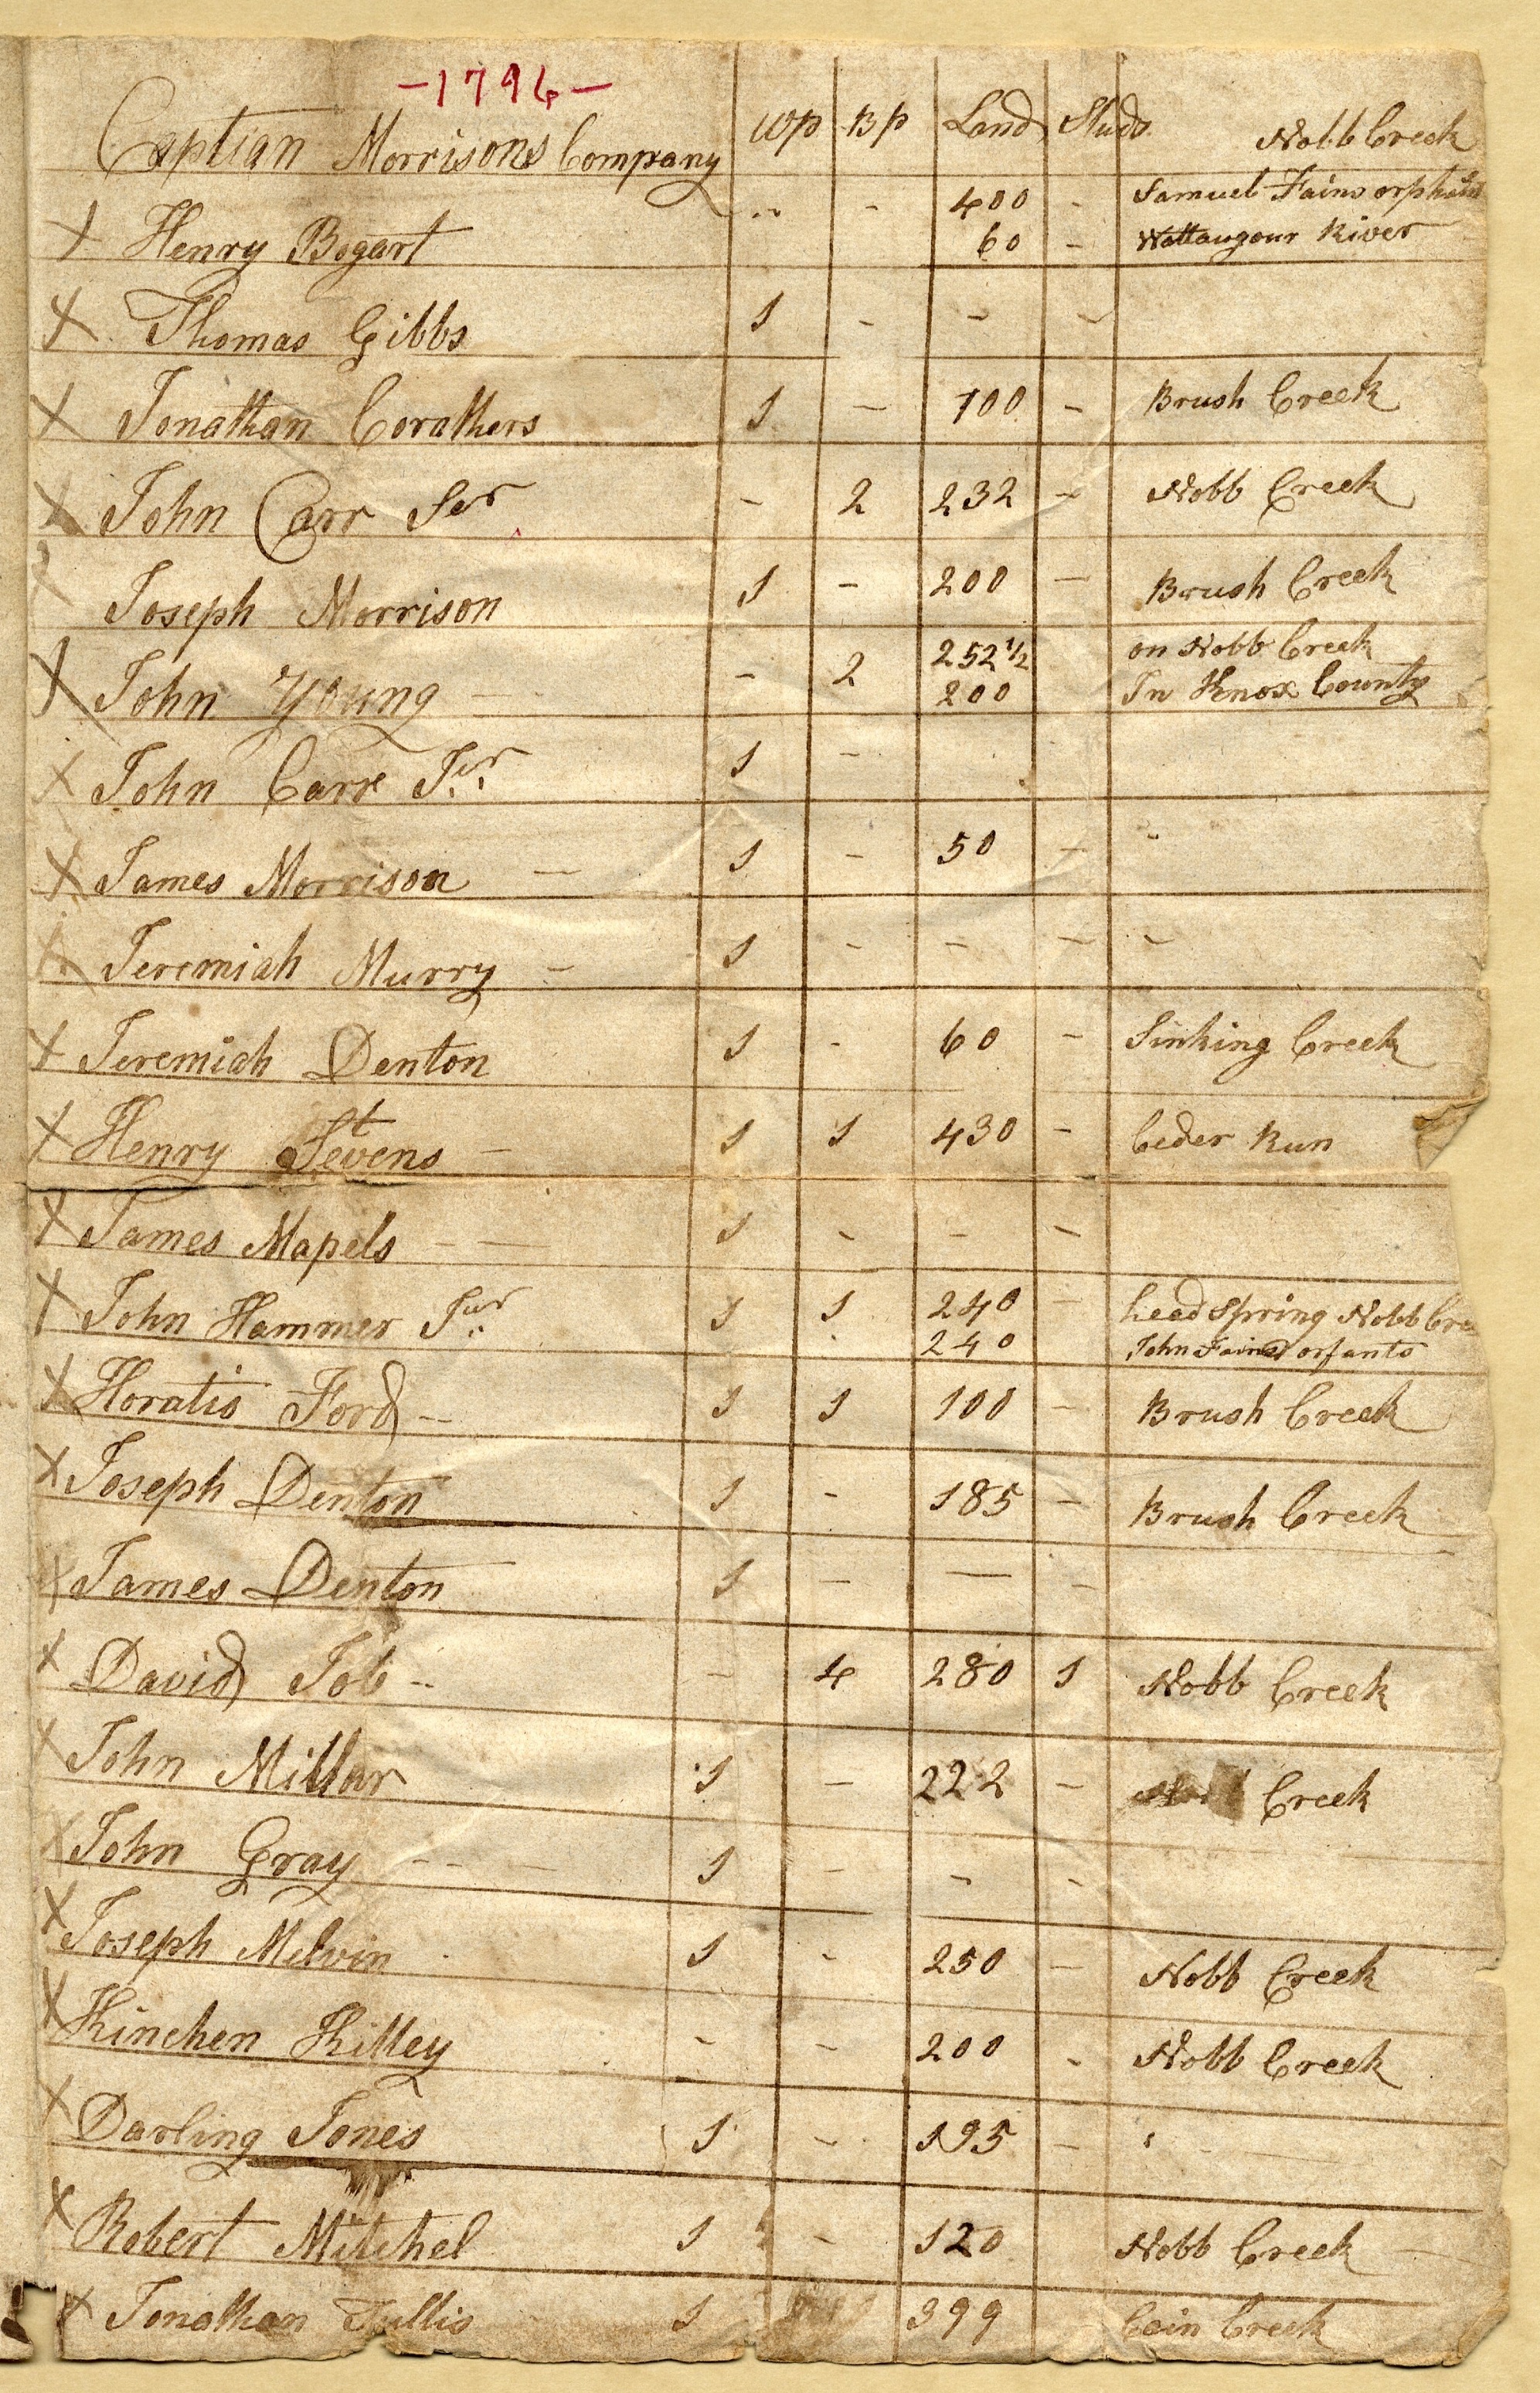 -1796-
Captian Morrisons Company Wp Bp Land Studs Nobb Creek
.. - 400 - Samuel Fains orphans
X Henry Bogart 60 - Wattaugour River
X Thomas Gibbs 1 - - -
X Jonathan Corathers 1 - 100 - Brush Creek
X John Carr Ser - 2 232 - Nobb Creek
X Joseph Morrison 1 - 200 - Brush Creek
252 1/2 on Nobb Creek
X John Young - 2 200 In Knox County
X John Carr Jur 1 -
X James Morrison - 1 - 50 - -
X Jeremiah Murry - 1 - - - -
X Jeremiah Denton 1 - 60 - Sinking Creek
X Henry Stevens - 1 1 430 - Ceder Run
X James Mapels - 1 - - -
X John Hammer Jur 1 1 240 - head Spring Nobb Cree
240 John Fains orfants
X Horatio Ford - 1 1 100 - Brush Creek
X Joseph Denton 1 - 185 - Brush Creek
X James Denton 1 - - -
X David Job - - 4 280 1 Nobb Creek
X John Millar 1 - 222 - Creek
X John Gray - 1 - - -
X Joseph Melvin 1 - 250 - Nobb Creek
X Kinchen Killey - - 200 - Nobb Creek
X Darling Jones 1 - 195 -
X Robert Mitchel 1 - 120 Nobb Creek
X Jonathan Tullis 1 399 Coin Creek